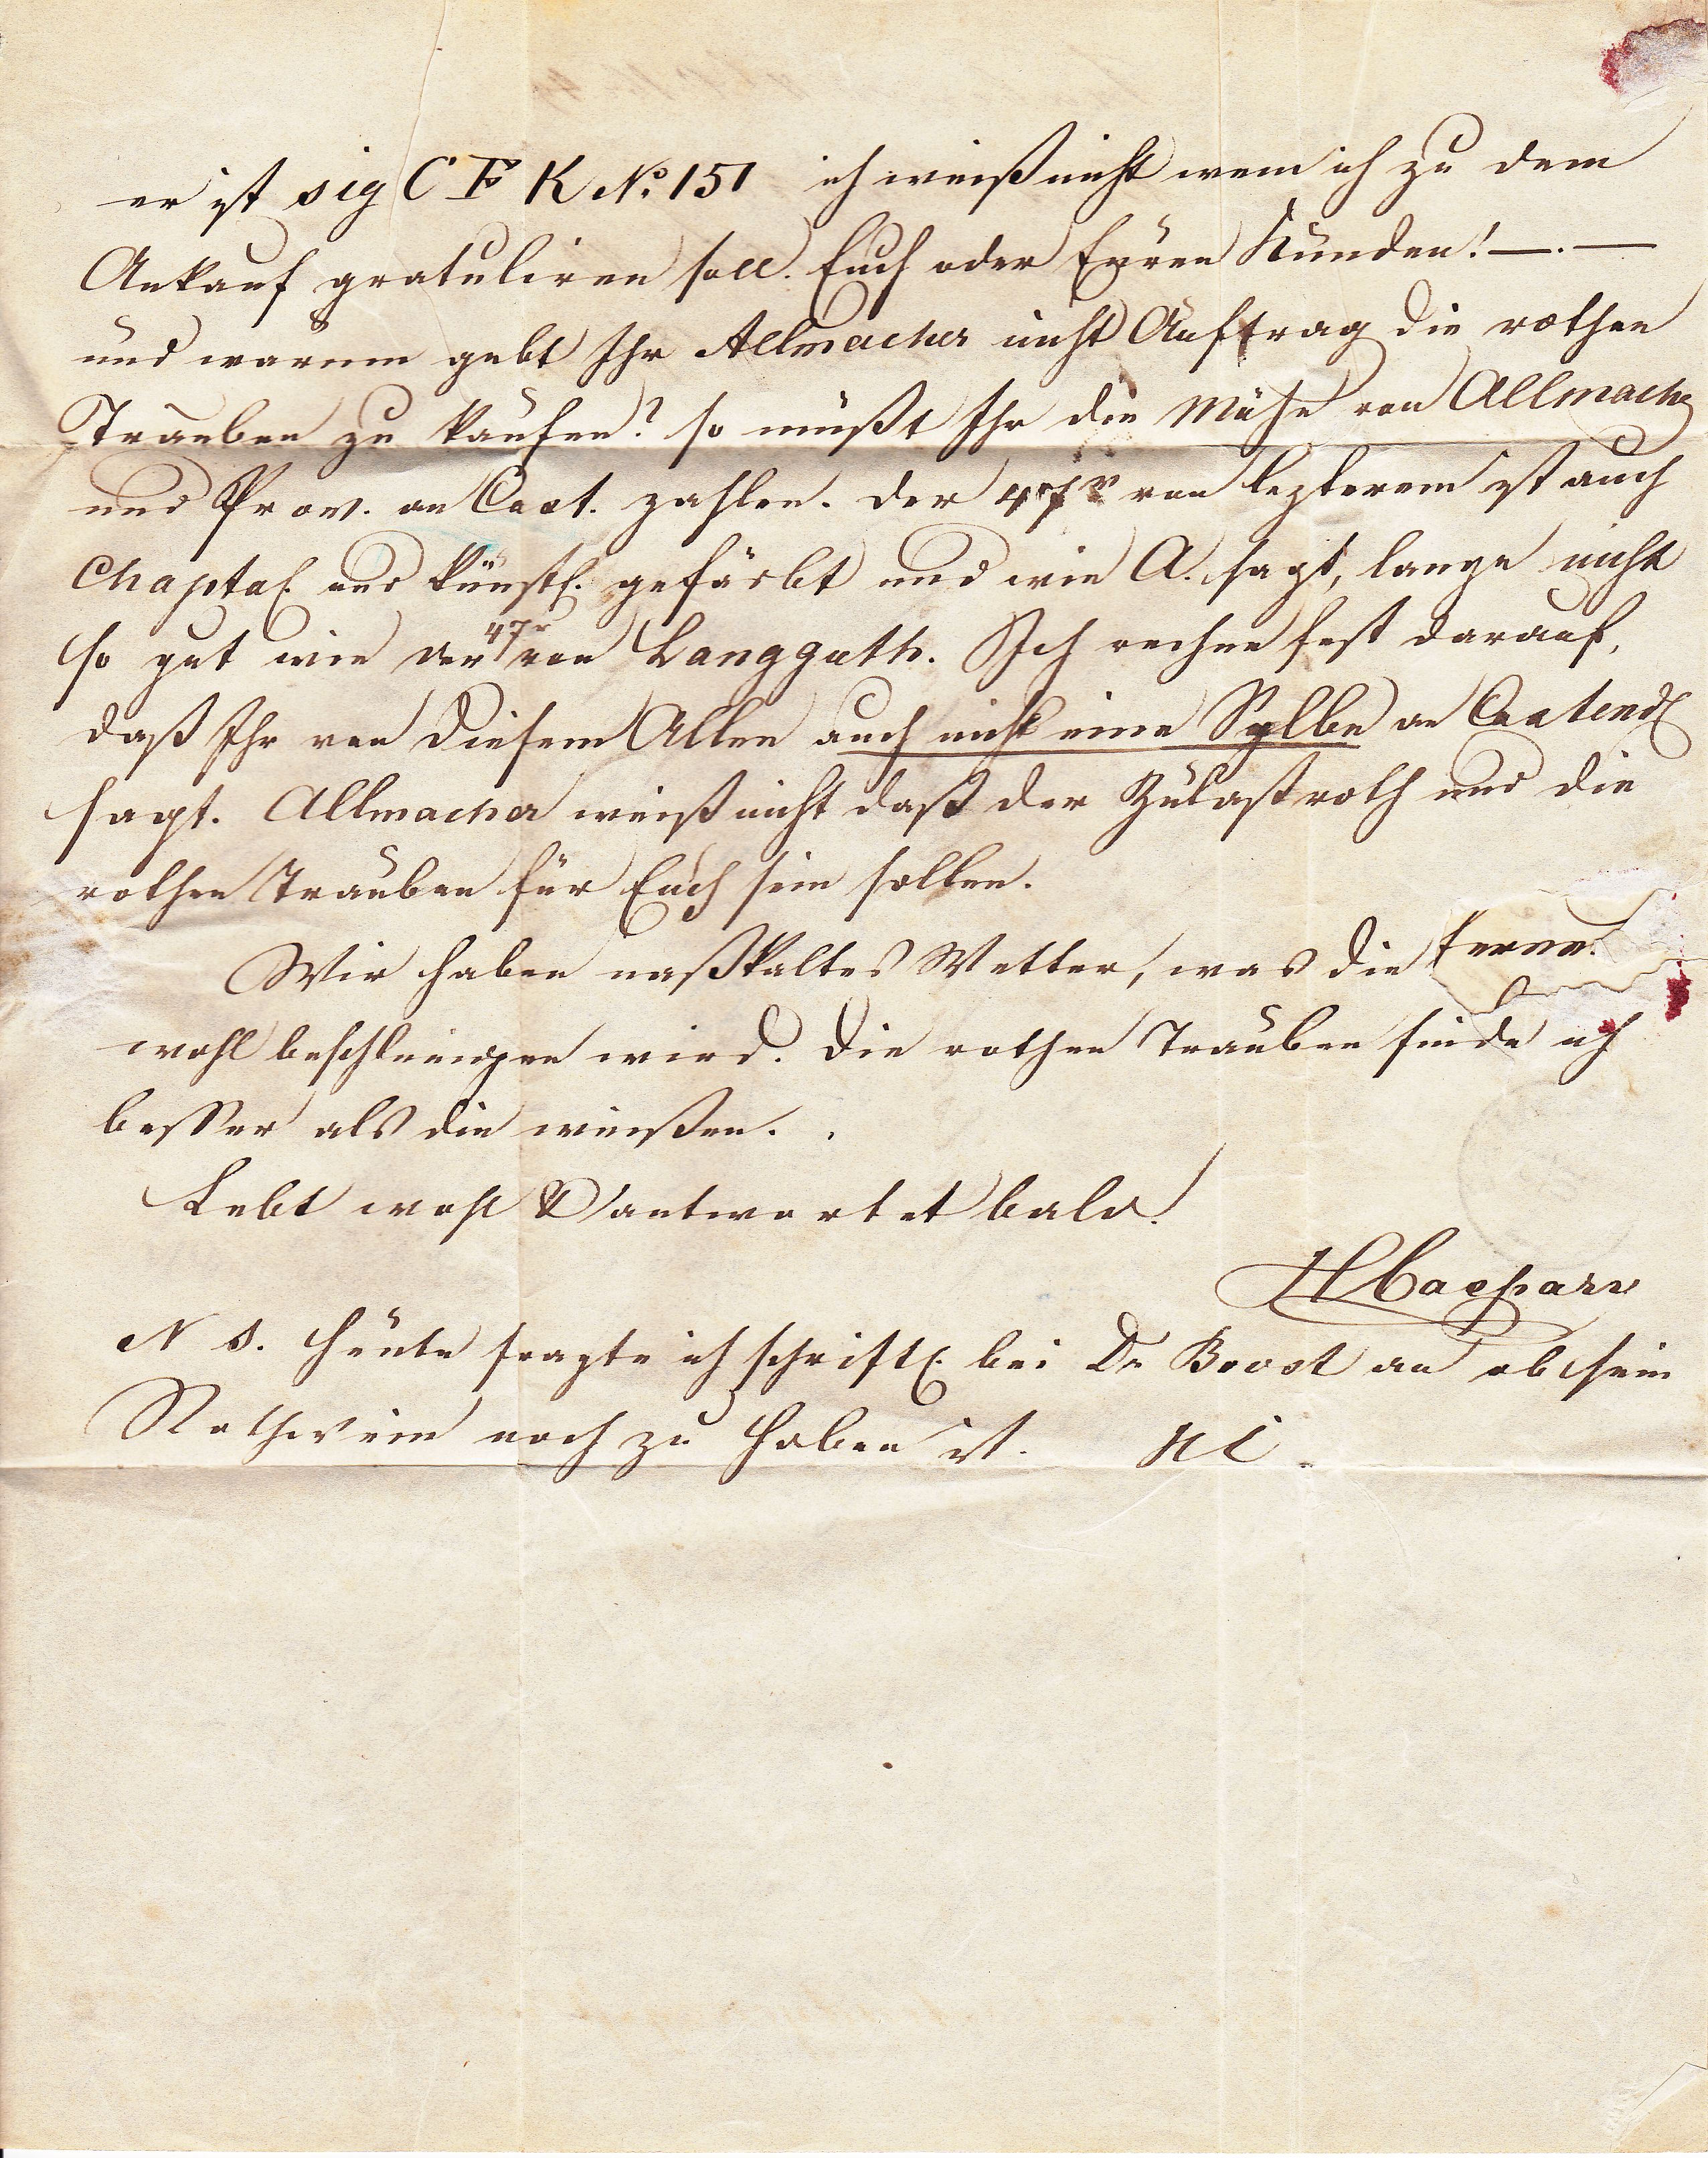 er ist sig C F K No. 151 ich weiß nicht wem ich zu dem
Ankauf gratuliren soll. Euch oder Euren Kunden! —.—
und warum gebt Ihr Allmacher nicht Auftrag die rothen
Trauben zu kaufen? so müßt Ihr die Mühe von Allmacher
und Prov. an Cast. zahlen. der 47r von lezterem ist auch
Chaptal. und künstl. gefärbt und wie A. sagt, lange nicht
so gut wie der 47r von Langguth. Ich rechne fest darauf,
daß Ihr von diesem Allen auch nicht eine Sylbe an
sagt. Allmacher weiß nicht daß der Zulastroth und die
rothen Trauben für Euch sein sollen.
Wir haben naßkaltes Wetter, was die
wohl beschleunigen wird. Die rothen Trauben finde ich
besser als die weißen.
Lebt wohl & antwortet bald.
HCaspary
N S. Heute fragte ich schriftl. bei Dr Boost an ob sein
Rothwein noch zu haben ist.